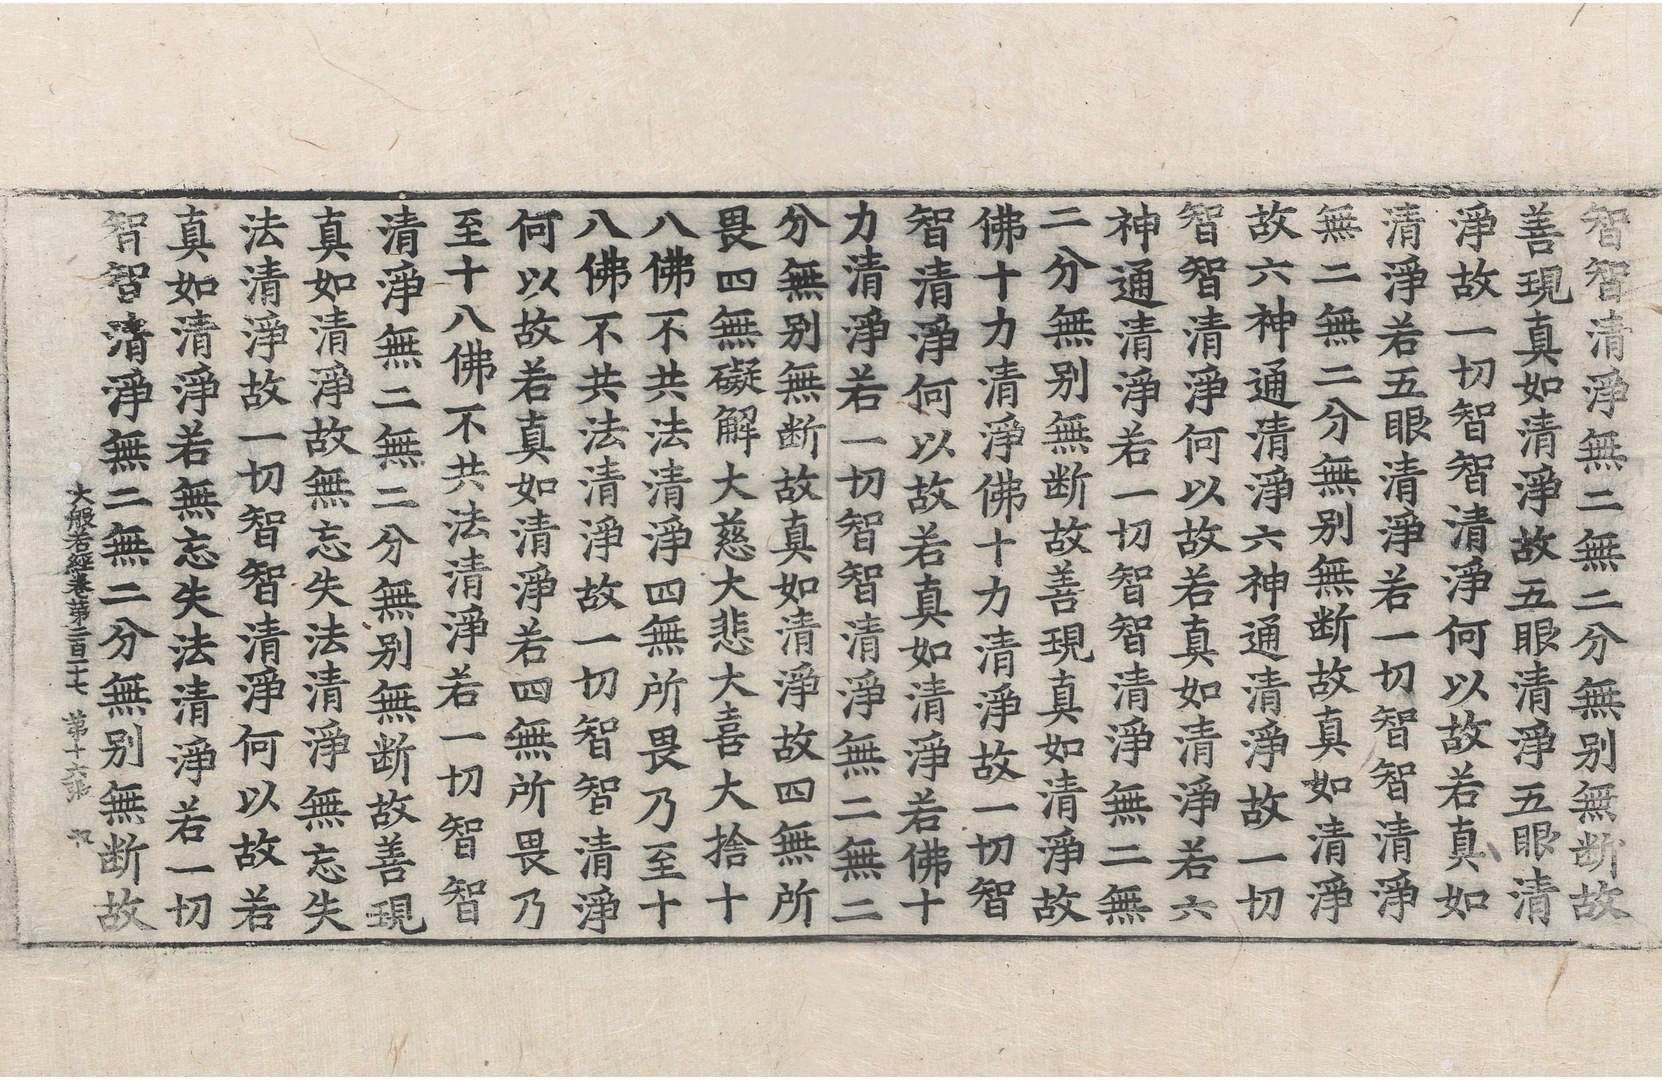 智智清淨無二無二分無別無断故
善現真如清淨故五眼清淨五眼清
淨故一切智智清淨何以故若真如
清淨若五眼清淨若一切智智清淨
無二無二分無別無断故真如清淨
故六神通清淨六神通清淨故一切
智智清淨何以故若真如清淨若六
神通清淨若一切智智清淨無二無
二分無別無断故善現真如清淨故
佛十力清淨佛十力清淨故一切智
智清淨何以故若真如清淨若佛十
力清淨若一切智智清淨無二無二
分無別無断故真如清淨故四無所
畏四無礙解大慈大悲大喜大捨十
八佛不共法清淨四無所畏乃至十
八佛不共法清淨故一切智智清淨
何以故若真如清淨若四無所畏乃
至十八佛不共法清淨若一切智智
清淨無二無二分無別無断故善現
真如清淨故無忘失法清淨無忘失
法清淨故一切智智清淨何以故若
真如清淨若無忘失法清淨若一切
智智清淨無二無二分無別無断故
大般若經卷第二百一十七 第十六張 収